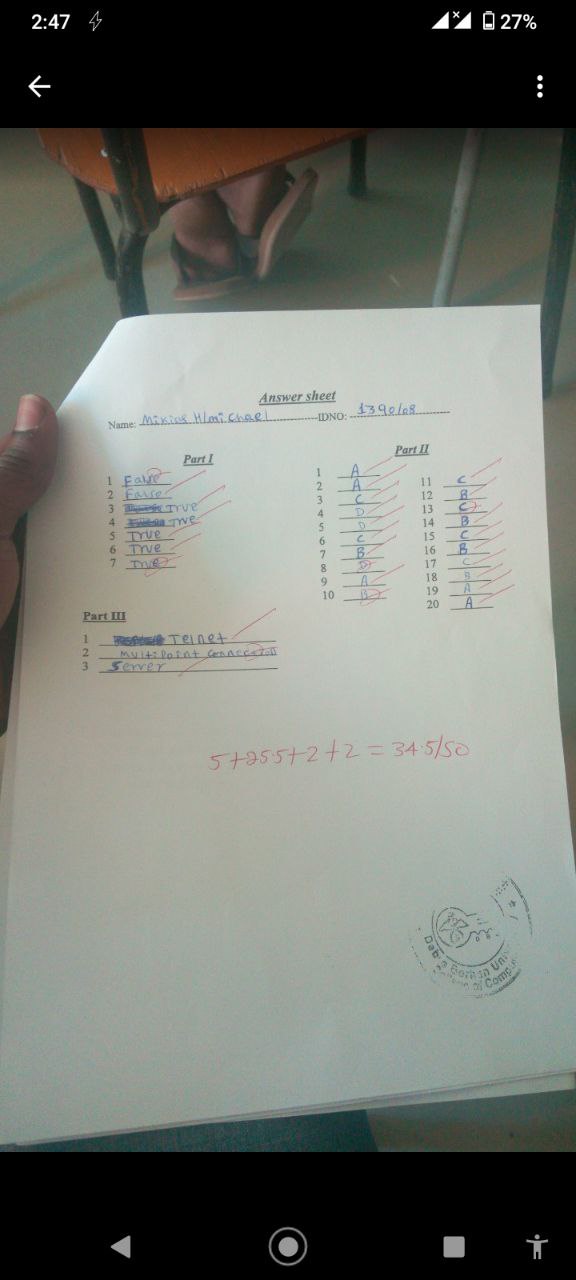 2:47
27%
Answer sheet
Name: Mikias H/michael IDNO: 1390/08
Part I
1 False
2 False
3 True
4 True
5 True
6 True
7 True
Part II
1 A
2 A
3 C
4 D
5 D
6 C
7 B
8 D
9 A
10 B
11 C
12 B
13 C
14 B
15 C
16 B
17 C
18 B
19 A
20 A
Part III
1 Telnet
2 Multipoint connection
3 Server
5+25.5+2+2=34.5/50
Berhan Uni
of Compu